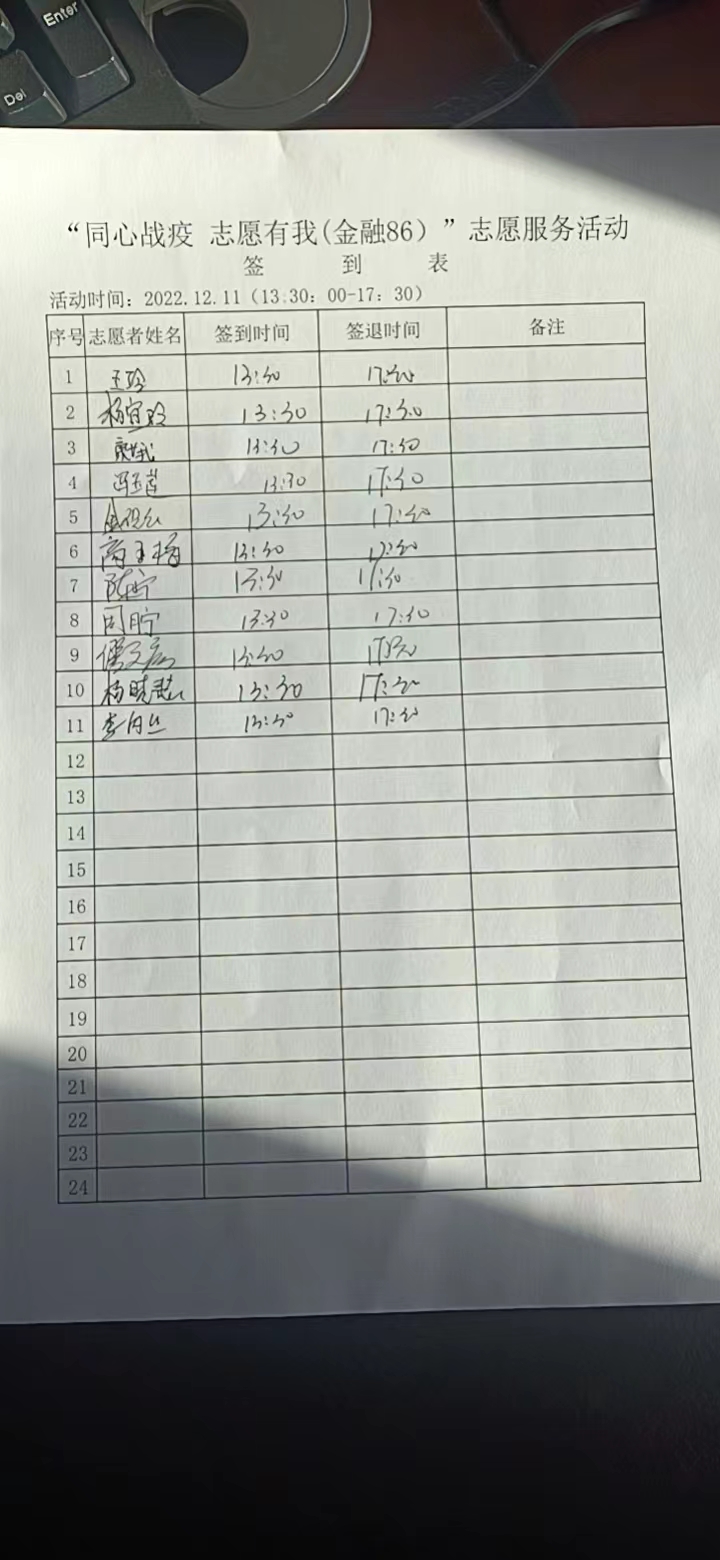 Enter
Del
“同心战疫 志愿有我(金融86)”志愿服务活动
签 到 表
活动时间：2022.12.11（13.30：00-17：30）
序号 志愿者姓名 签到时间 签退时间 备注
1 王玲 13:30 17:30
2 杨宜玲 13:30 17:30
3 13:30 17:30
4 13:30 17:30
5 13:30 17:30
6 高玉梅 13:30 17:30
7 陈宁 13:30 17:30
8 闫貯 13:30 17:30
9 13:30 17:30
10 杨晓慧 13:30 17:30
11 13:30 17:30
12
13
14
15
16
17
18
19
20
21
22
23
24